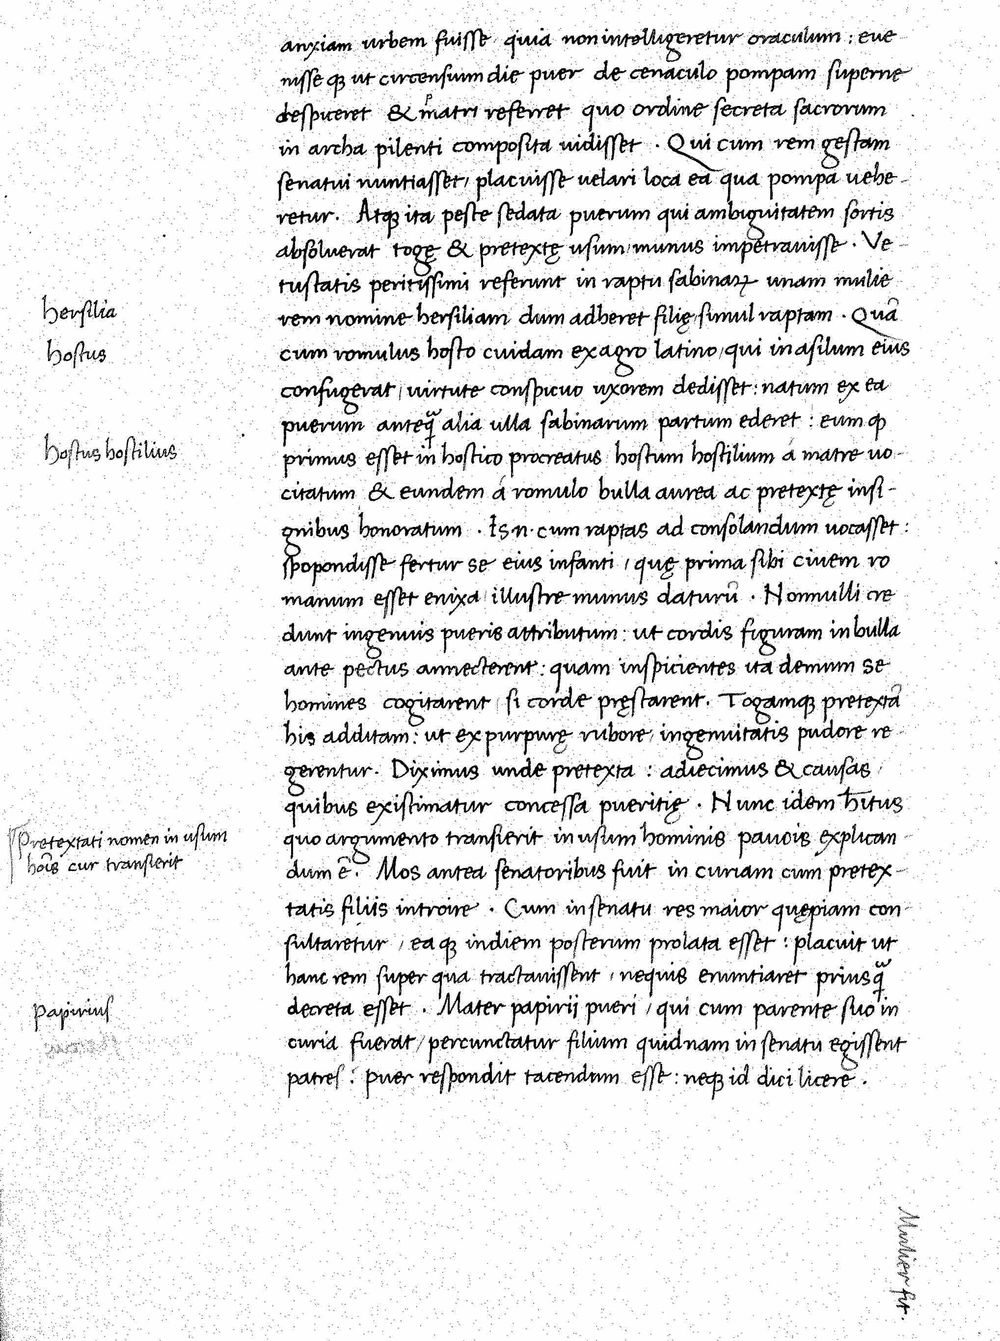 anxiam urbem fuisse quia non intelligeretur oraculum : eue
nisse qꝫ ut circensium die puer de cenaculo pompam superne
despiceret & matri referret quo ordine secreta sacrorum
in archa pilenti composita uidisset . Qui cum rem gestam
senatui nuntiasset, placuisse uelari loca ea qua pompa uehe-
retur. Atqꝫ ita peste sedata puerum qui ambiguitatem sortis
absoluerat togę & pretextę usum munus impetrauisse . Ve-
tustatis peritissimi referunt in raptu sabinaꝝ unam mulie
rem nomine hersiliam dum adheret filię simul raptam . Quā
cum romulus hosto cuidam ex agro latino, qui in asilum eius
confugerat, uirtute conspicuo uxorem dedisset : natum ex ea
puerum anteq̃ alia ulla sabinarum partum ederet : eum qꝫ
primus esset in hostico procreatus hostum hostilium á matre uo-
citatum & eundem á romulo bulla aurea ac pretextę insi-
gnibus honoratum . Is .n. cum raptas ad consolandum uocasset :
spopondisse fertur se eius infanti, quę prima sibi ciuem ro
manum esset enixa illustre munus daturū . Nonnulli cre
dunt ingenuis pueris attributum : ut cordis figuram in bulla
ante pectus annecterent : quam inspicientes ita demum se
homines cogitarent si corde pręstarent. Togamqꝫ pretextā
his additam : ut ex purpurę rubore, ingenuitatis pudore re-
gerentur. Diximus unde pretexta : adiecimus & causas,
quibus existimatur concessa pueritię . Nunc idem h̄itus
quo argumento transierit in usum hominis paucis explican
dum ē . Mos antea senatoribus fuit in curiam cum pretex-
tatis filiis introire . Cum in senatu res maior quępiam con
sultaretur , ea qꝫ in diem posterum prolata esset : placuit ut
hanc rem super qua tractauissent , nequis enuntiaret priusq̃
decreta esset . Mater papirij pueri , qui cum parente suo in
curia fuerat, percunctatur filium quidnam in senatu egissent
patres : puer respondit tacendum esse : neqꝫ id dici licere .
hersilia
hostus
hostus hostilius
Pretextati nomen in usum
hoīs cur transierit
papirius
Mulier fit.